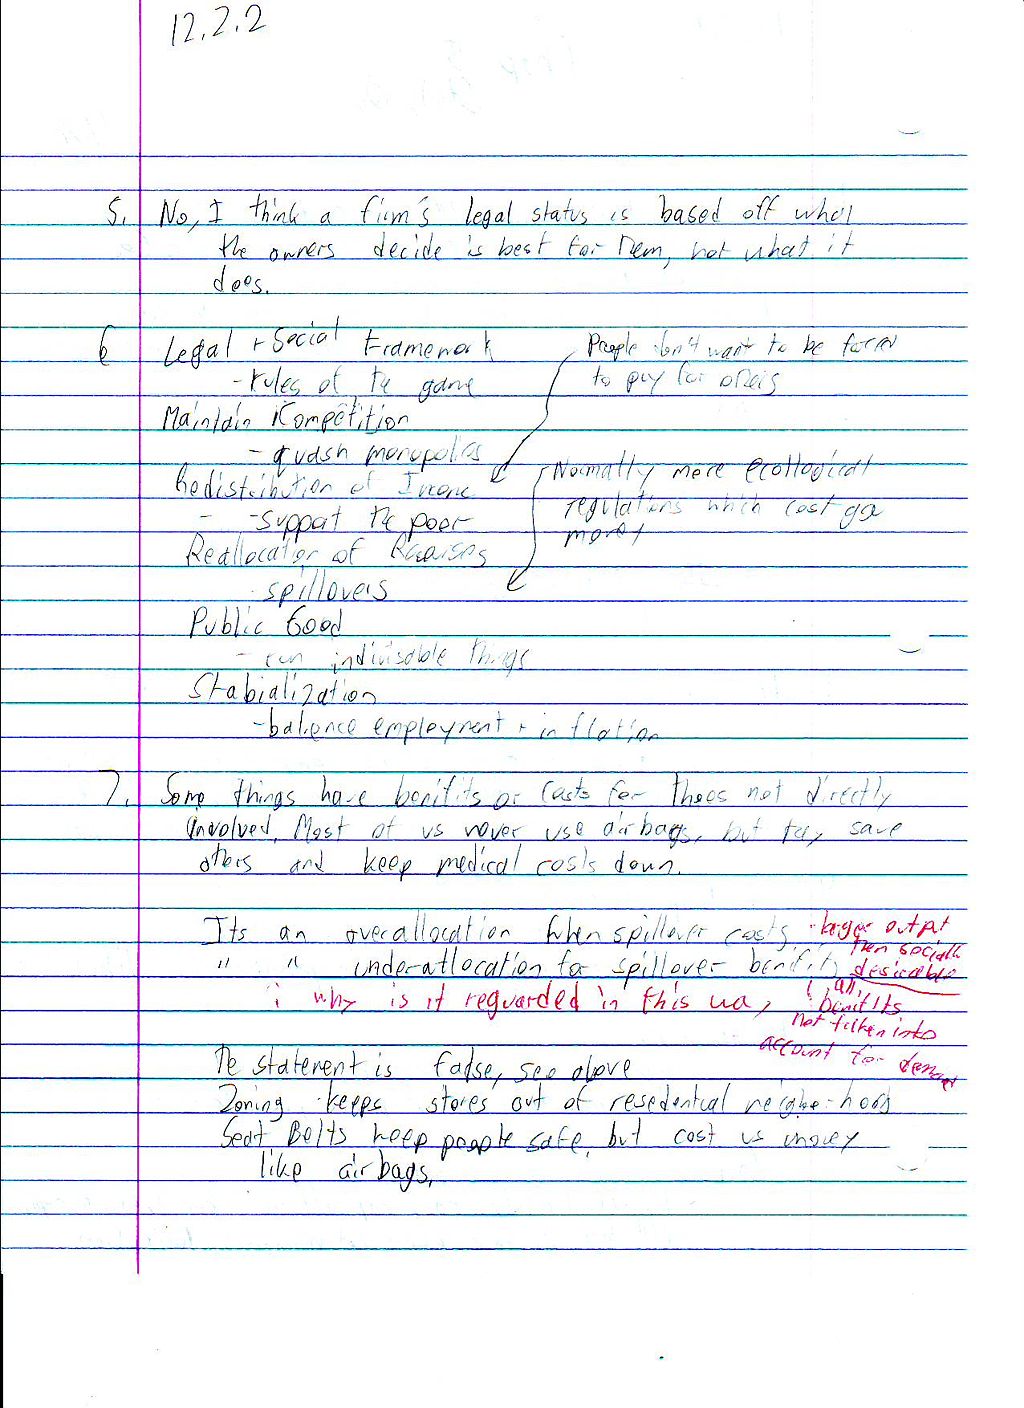 12.2.2
5. No, I think a firm's legal status is based off what
the owners decide is best for them, not what it
does.
6 Legal + Social Framework
- rules of the game
People don't want to be forced
to pay for others
Maintain Competition
- quash monopolies
Redistribution of Income
- -support the poor
Normally more
regulations which cost
money
Reallocation of
- spillovers
Public Good
- run indivisable things
Stabialization
-balience employment + inflation
7. Some things have benifits or costs for thoes not directly
involved. Most of us never use airbags, but they save
others and keep medical costs down.
Its an overallocation when spillover costs
" " underallocation for spillover benifits
- larger output
then socially
desireable
why is it reguarded in this way
all
benifits
not taken into
account for demand
The statement is false, see above
Zoning keeps stores out of resedential neighborhoods
Seat Belts keep people safe, but cost us money
like airbags.